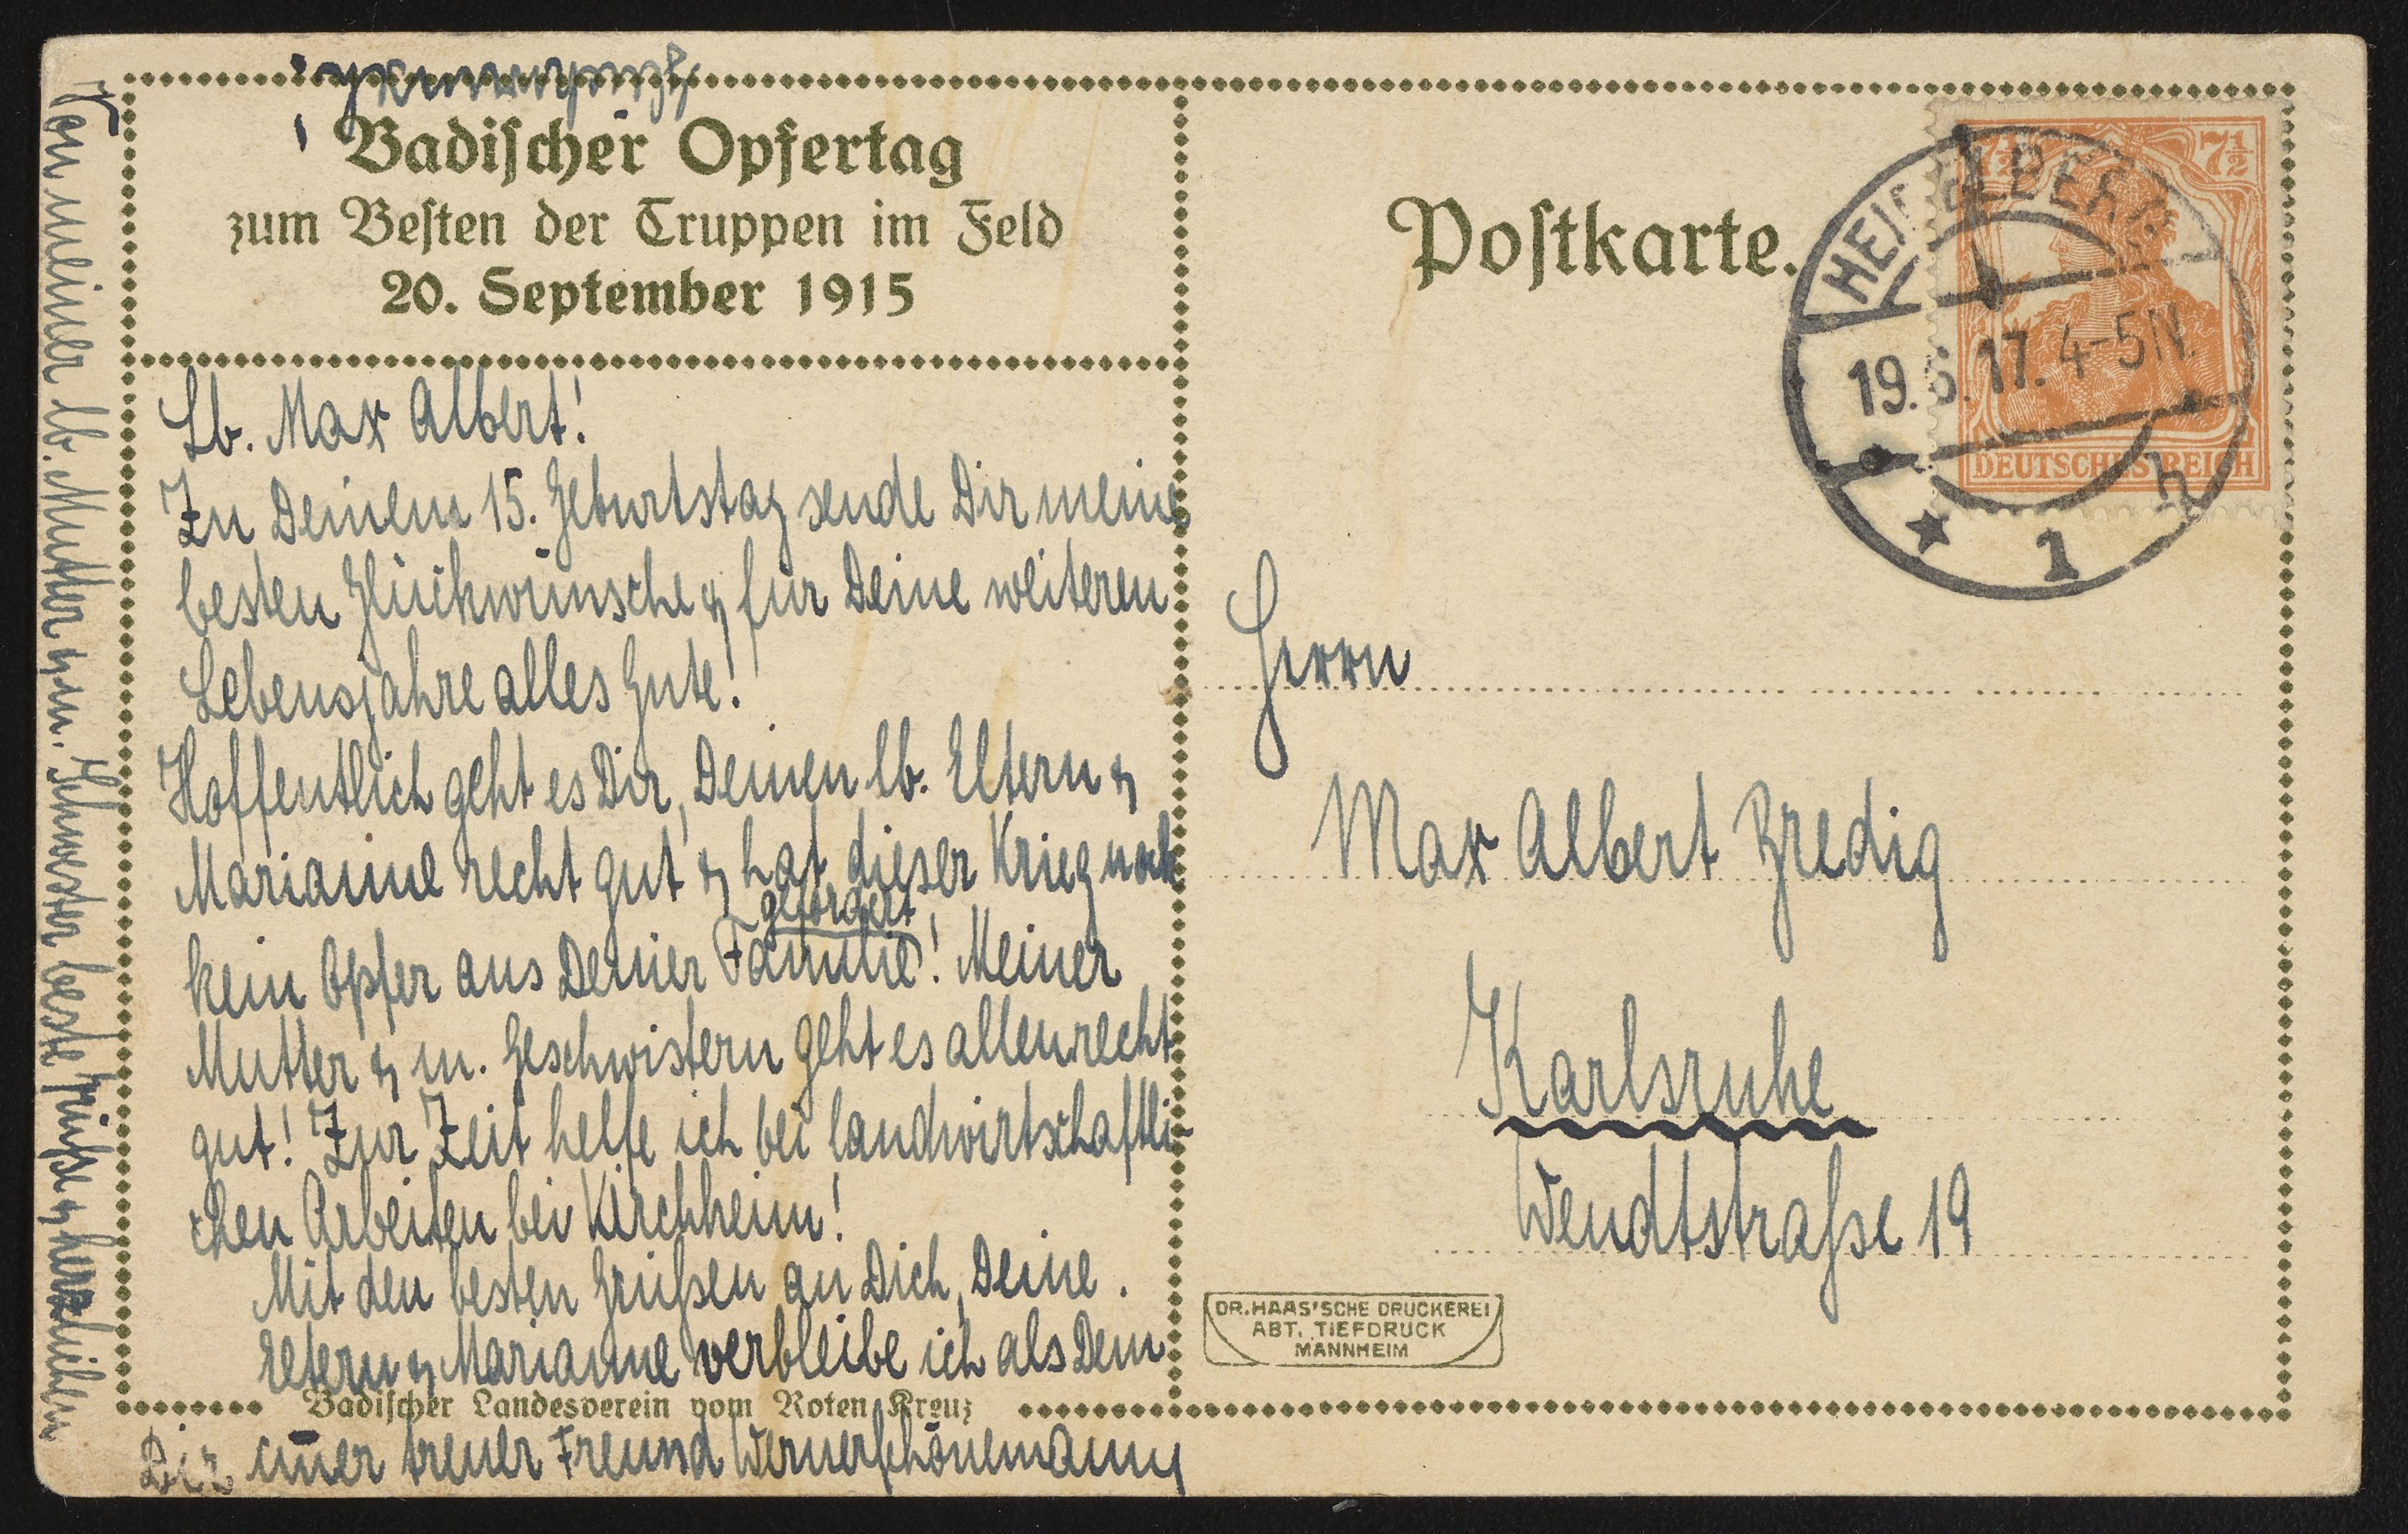 Badischer Opfertag
zum Besten der Truppen im Feld
20. September 1915
Lb. Max Albert!
Zu Deinem 15. Geburtstag sende Dir meine
besten Glückwünsche & für Deine weiteren
Lebensjahre alles Gute!
Hoffentlich geht es Dir, Deinen lb. Eltern &
Marianne recht gut & hat dieser Krieg noch
gefordert
kein Opfer aus Deiner Familie! Meiner
Mutter & m. Geschwistern geht es allen recht
gut! Zur Zeit helfe ich bei landwirtschaftli-
chen Arbeiten bei Kirchheim!
Mit den besten Grüßen an Dich, Deine
Eltern & Marianne verbleibe ich als Dein
Badischer Landesverein vom Roten Kreuz
Dir immer treuer Freund Werner Schönemann
Von meiner lb. Mutter & m. Schwester beste Grüße & herzlichen
Postkarte.
HEIDELBERG
19.6.17. 4-5N.
* 1 h
7½ 7½
DEUTSCHES REICH
Herrn
Max Albert Bredig
Karlsruhe
Wendtstraße 19
DR. HAAS'SCHE DRUCKEREI
ABT. TIEFDRUCK
MANNHEIM